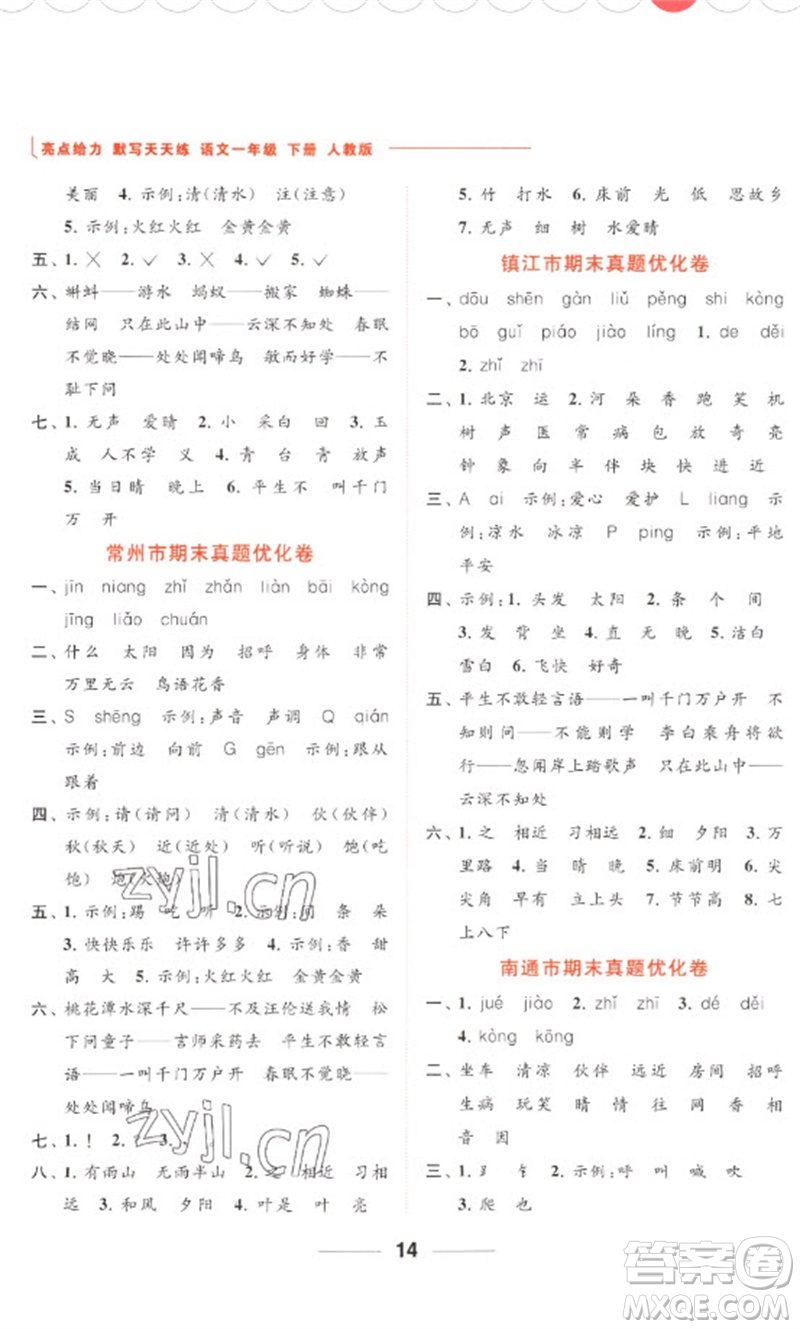 亮点给力 默写天天练 语文一年级 下册 人教版
美丽 4. 示例:清(清水) 注(注意)
5. 示例:火红火红 金黄金黄
五、1. ✕ 2. ✓ 3. ✕ 4. ✕ 5. ✓ 6. ✓
六、蝌蚪——游水 蚂蚁——搬家 蜘蛛——
结网 只在此山中——云深不知处 春眠
不觉晓——处处闻啼鸟 敏而好学——不
耻下问
七、1. 无声 爱晴 2. 小 采白 回 3. 玉
成 人不学 义 4. 青 台 青 放声
5. 当日晴 晚上 6. 平生不 叫千门
万 开
常州市期末真题优化卷
一、jīn niang zhǐ zhǎn liàn bāi kòng
jīng liǎo chuán
二、什么 太阳 因为 招呼 身体 非常
万里无云 鸟语花香
三、S shēng 示例:声音 声调 Q qián
示例:前边 向前 G gēn 示例:跟从
跟着
四、示例:请(请问) 清(清水) 伙(伙伴)
秋(秋天) 近(近处) 听(听说) 饱(吃
饱) 炮(火炮)
五、1. 示例:踢 吃 听 2. 示例: 条 朵
3. 快快乐乐 许许多多 4. 示例:香 甜
高 大 5. 示例:火红火红 金黄金黄
六、桃花潭水深千尺——不及汪伦送我情 松
下问童子——言师采药去 平生不敢轻言
语——一叫千门万户开 春眠不觉晓——
处处闻啼鸟
七、1. ! 2. 3.
八、1. 有雨山 无雨半山 2. 之 相近 习相
远 3. 和风 夕阳 4. 叶是 叶 亮
5. 竹 打水 6. 床前 光 低 思故乡
7. 无声 细 树 水爱晴
镇江市期末真题优化卷
一、dōu shēn gàn liǔ pěng shi kòng
bō guǐ piáo jiào líng 1. de děi
2. zhǐ zhī
二、1. 北京 运 2. 河 朵 香 跑 笑 机
树 声 医 常 病 包 放 奇 亮
钟 象 向 半 伴 块 快 进 近
三、A ai 示例:爱心 爱护 L liang 示
例:凉水 冰凉 P ping 示例:平地
平安
四、示例:1. 头发 太阳 2. 条 个 间
3. 发 背 坐 4. 直 无 晚 5. 洁白
雪白 6. 飞快 好奇
五、平生不敢轻言语——一叫千门万户开 不
知则问——不能则学 李白乘舟将欲
行——忽闻岸上踏歌声 只在此山中——
云深不知处
六、1. 之 相近 习相远 2. 细 夕阳 3. 万
里路 4. 当 晴 晚 5. 床前明 6. 尖
尖角 早有 立上头 7. 节节高 8. 七
上八下
南通市期末真题优化卷
一、1. jué jiào 2. zhǐ zhī 3. dé děi
4. kòng kōng
二、坐车 清凉 伙伴 远近 房间 招呼
生病 玩笑 晴 情 往 网 香 相
音 因
三、1. 𧾷 钅 2. 示例:呼 叫 喊 吹
3. 爬 也
14
zyjl.cn
zyjl.cn
答案圈
MXQE.COM